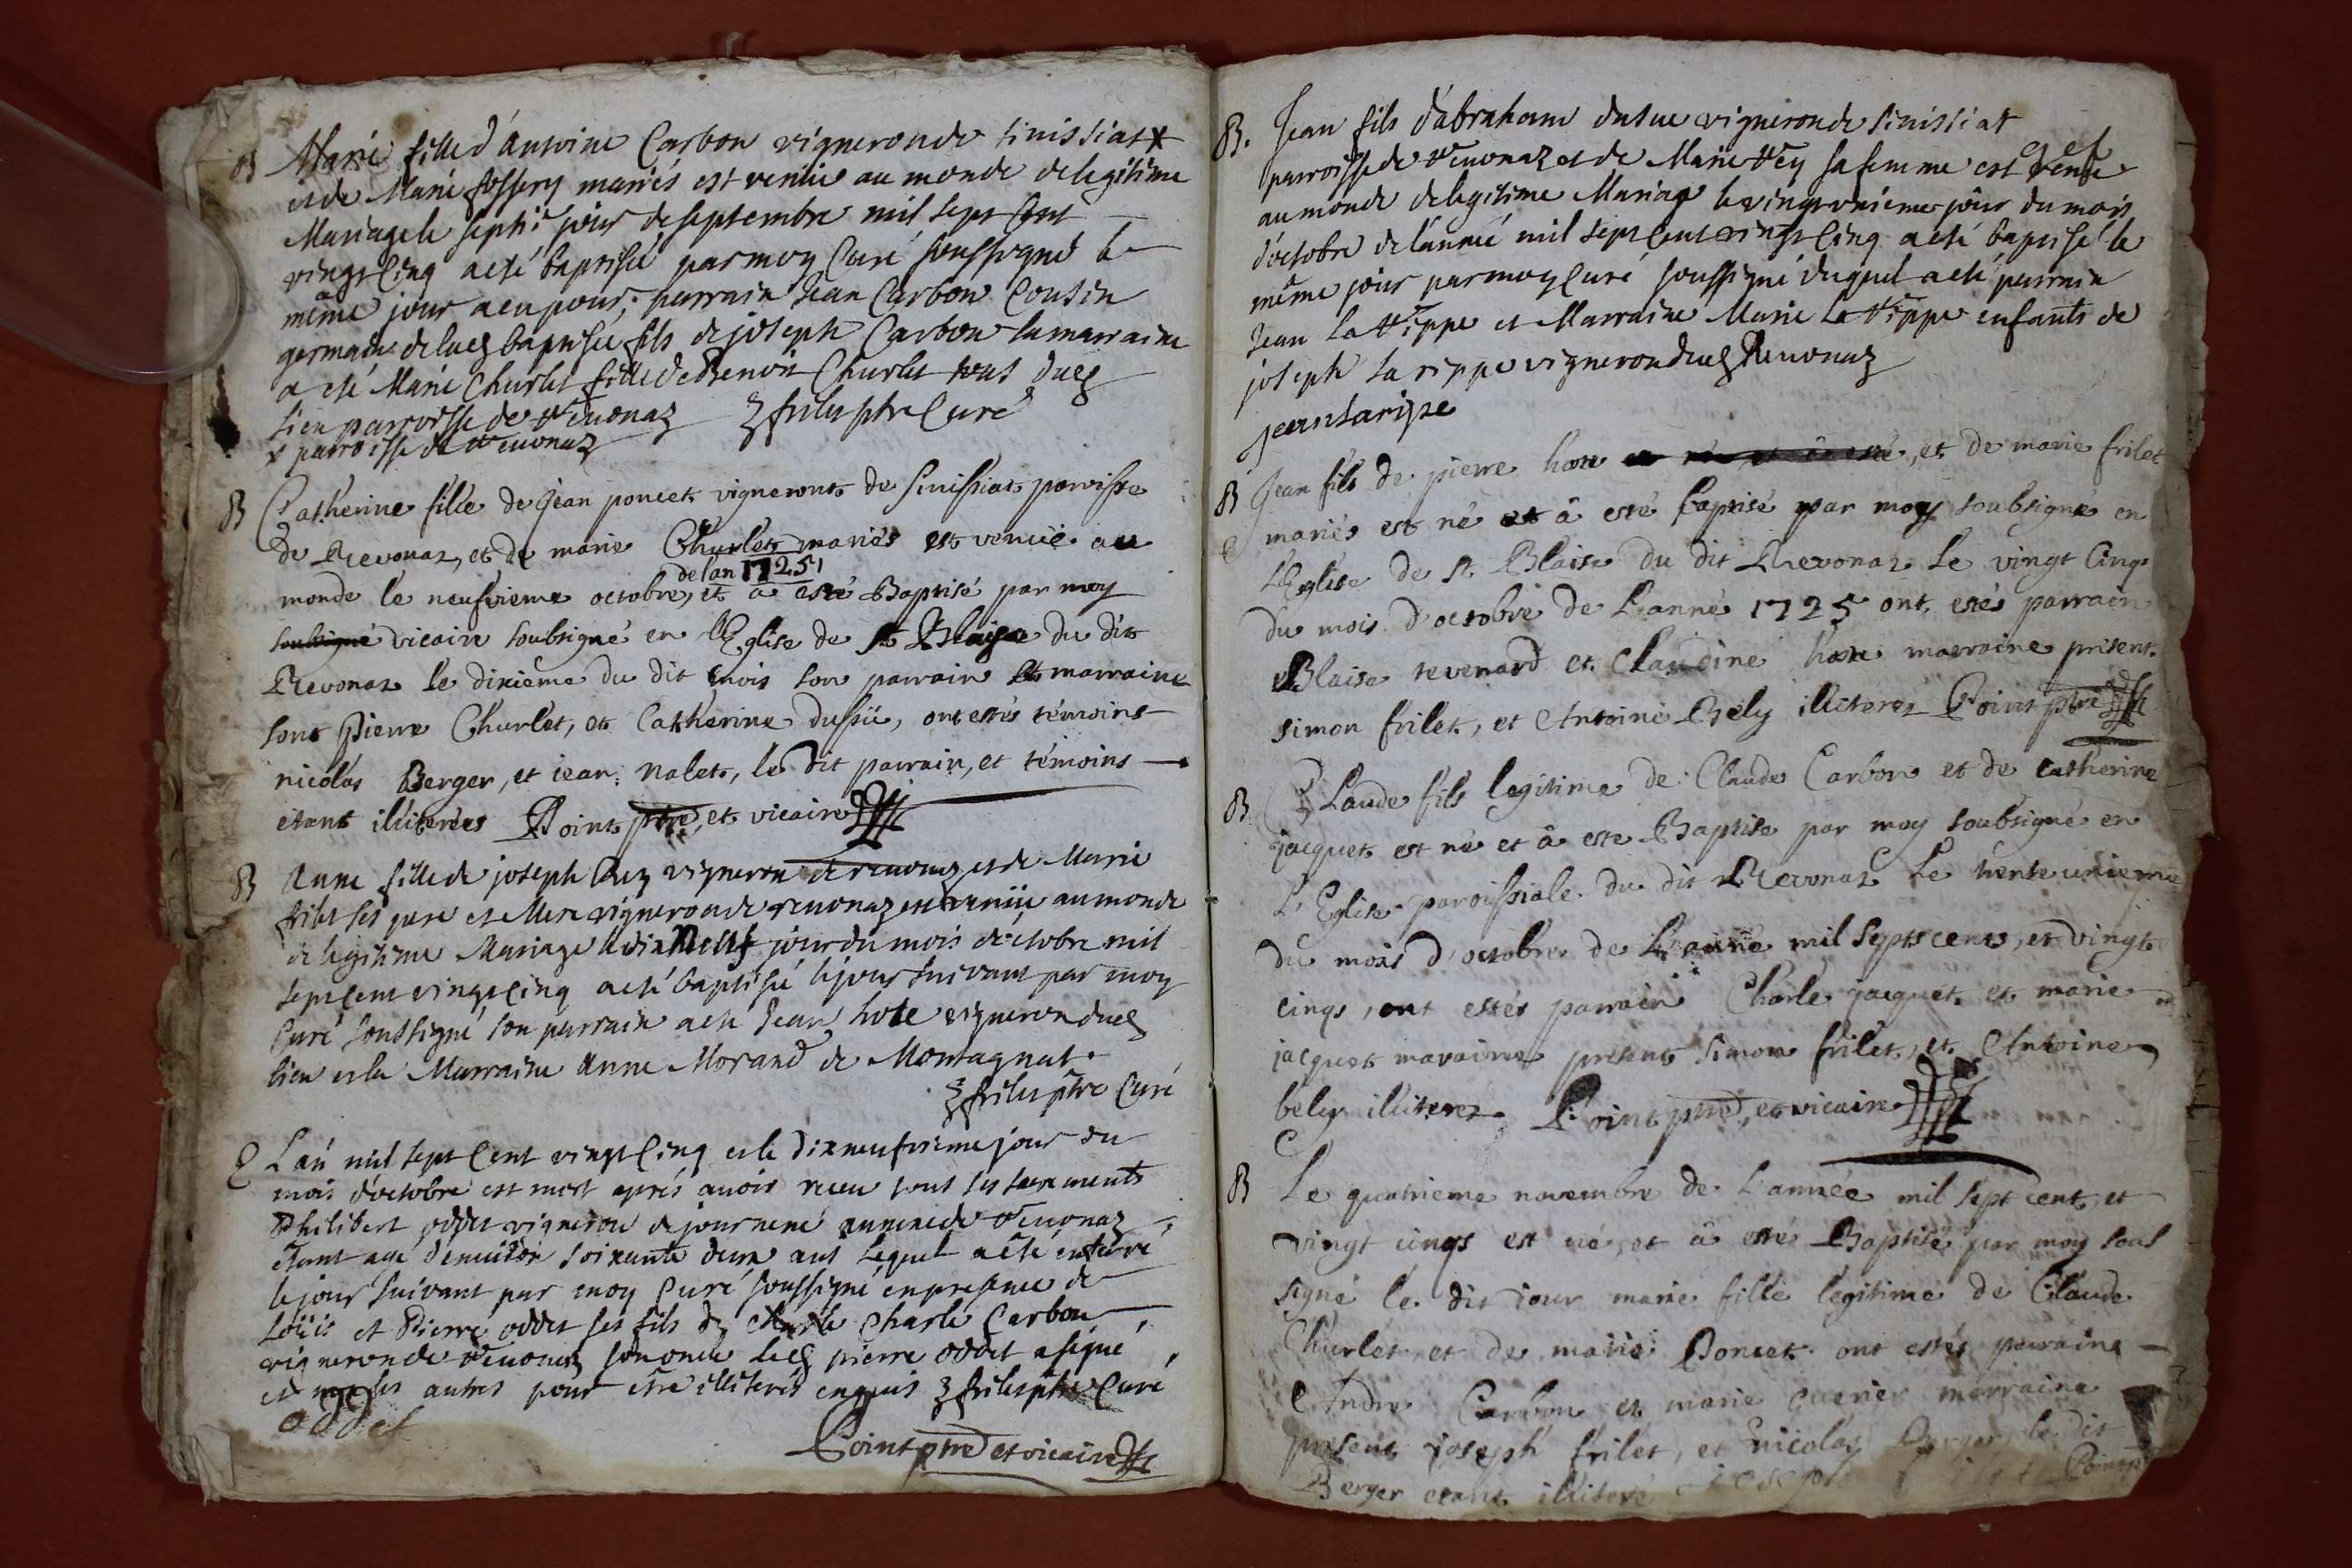 B Marie fille d'Antoine Carbon vigneron de sinissiat x
et de Marie fossery mariés est venüe au monde de legitime
Mariage le septi: jour de septembre mil sept Cent
vingt Cinq a eté baptisée par moy Curé soussigné le
même jour a eu pour parrain Jean Carbon Cousin
germain de lad baptisée fils de joseph Carbon la marraine
a eté Marie Churlet fille de Benoit Churlet tous dud
lieu parroisse de revonaz frilet ptre Curé
x parroisse de revonaz
B Catherine fille de Jean poncet vigneront de sinissiat parroisse
de Revonas, et de marie Churlet mariés est venüe au
de lan 1725
monde le neufvieme octobre, et a esté Baptisé par moy
soubsigné vicaire soubsigné en l'Eglise de st Blaise du dit
Revonas le dixieme du dit mois son parrain et marraine
sont Pierre Churlet, et Catherine dussü, ont estés témoins
nicolas Berger, et jean nalet, le dit parrain, et témoins
etant illiterées Point ptre, et vicaire
B Anne fille de joseph vigneron de revonaz et de Marie
frilet ses pere et Mere vigneron de revonaz est venüe au monde
de legitime Mariage le dix Neuf jour du mois d'octobre mil
sept Cent vingt Cinq a eté baptisée le jour suivant par moy
Curé soussigné son parrain a eté Jean hote vigneron dud
lieu et la Marraine Anne Morand de Montagnat.
frilet ptre Curé
L'an mil sept Cent vingt Cinq et le dixneufvieme jour du
mois d'octobre est mort aprés avoir receu tous ses sacrements
Philibert oddet vigneron de revonaz
étant agé d'environ soixante deux ans lequel a eté enterré
le jour suivant par moy Curé soussigné en presence de
Loüis et Pierre oddet ses fils de Charle Carbon
vigneron de revonaz led pierre oddet a signé
et les autres pour être illiterés enquis frilet ptre Curé
oddet
Point ptre et vicaire
B. Jean fils d'abraham dusue vigneron de sinissiat
parroisse de revonaz et de Marie rey sa femme est venu
au monde de legitime Mariage le vingt unieme jour du mois
d'octobre de l'année mil sept Cent vingt Cinq a eté baptisé le
même jour par moy Curé soussigné duquel a eté parrain
Jean La rippe et Marraine Marie La rippe enfants de
joseph La rippe vigneron dud Revonaz
jean laripe
B Jean fils de pierre hote, et de marie frilet
mariés est né et â esté baptisé par moy soubsigné en
l'Eglise de st Blaise du dit Revonas le vingt Cinq
du mois d'octobre de L'anné 1725 ont estés parrain
Blaise revenard et Claudine hote marraine présent
simon frilet, et Antoine Bely illiteres Point ptre
B Claude fils legitime de Claude Carbon et de catherine
jacquet est né et â esté Baptise par moy soubsigné en
L'Eglise paroissiale du dit Revonas Le trente unieme
du mois d'octobre de L'année mil Sept cent, et vingt
cinqs, ont estés parrain Charle jacquet et marie
jacquet maraine présent simon frilet, et Antoine
bely illiteres Point ptre, et vicaire
B Le quatrieme novembre de L'année mil sept cent, et
vingt cinqs est né, et â esté Baptisé par moy sous
signé le dit jour marie fille legitime de Claude
Churlet, et de marie Poncet ont estés parraine
Andre Carbon et marie guerier marraine
présent joseph frilet, et nicolas Berger, le dit
Berger etant illiteré joseph Point